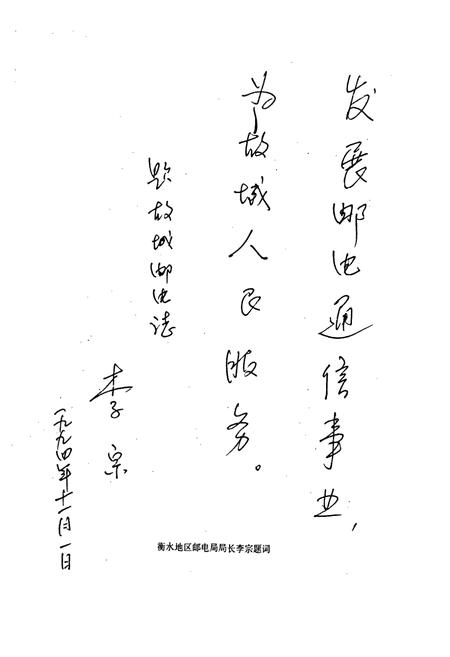 发展邮电通信事业，
为故城人民服务。
题故城邮电志
李宗
一九九四年十一月一日
衡水地区邮电局局长李宗题词